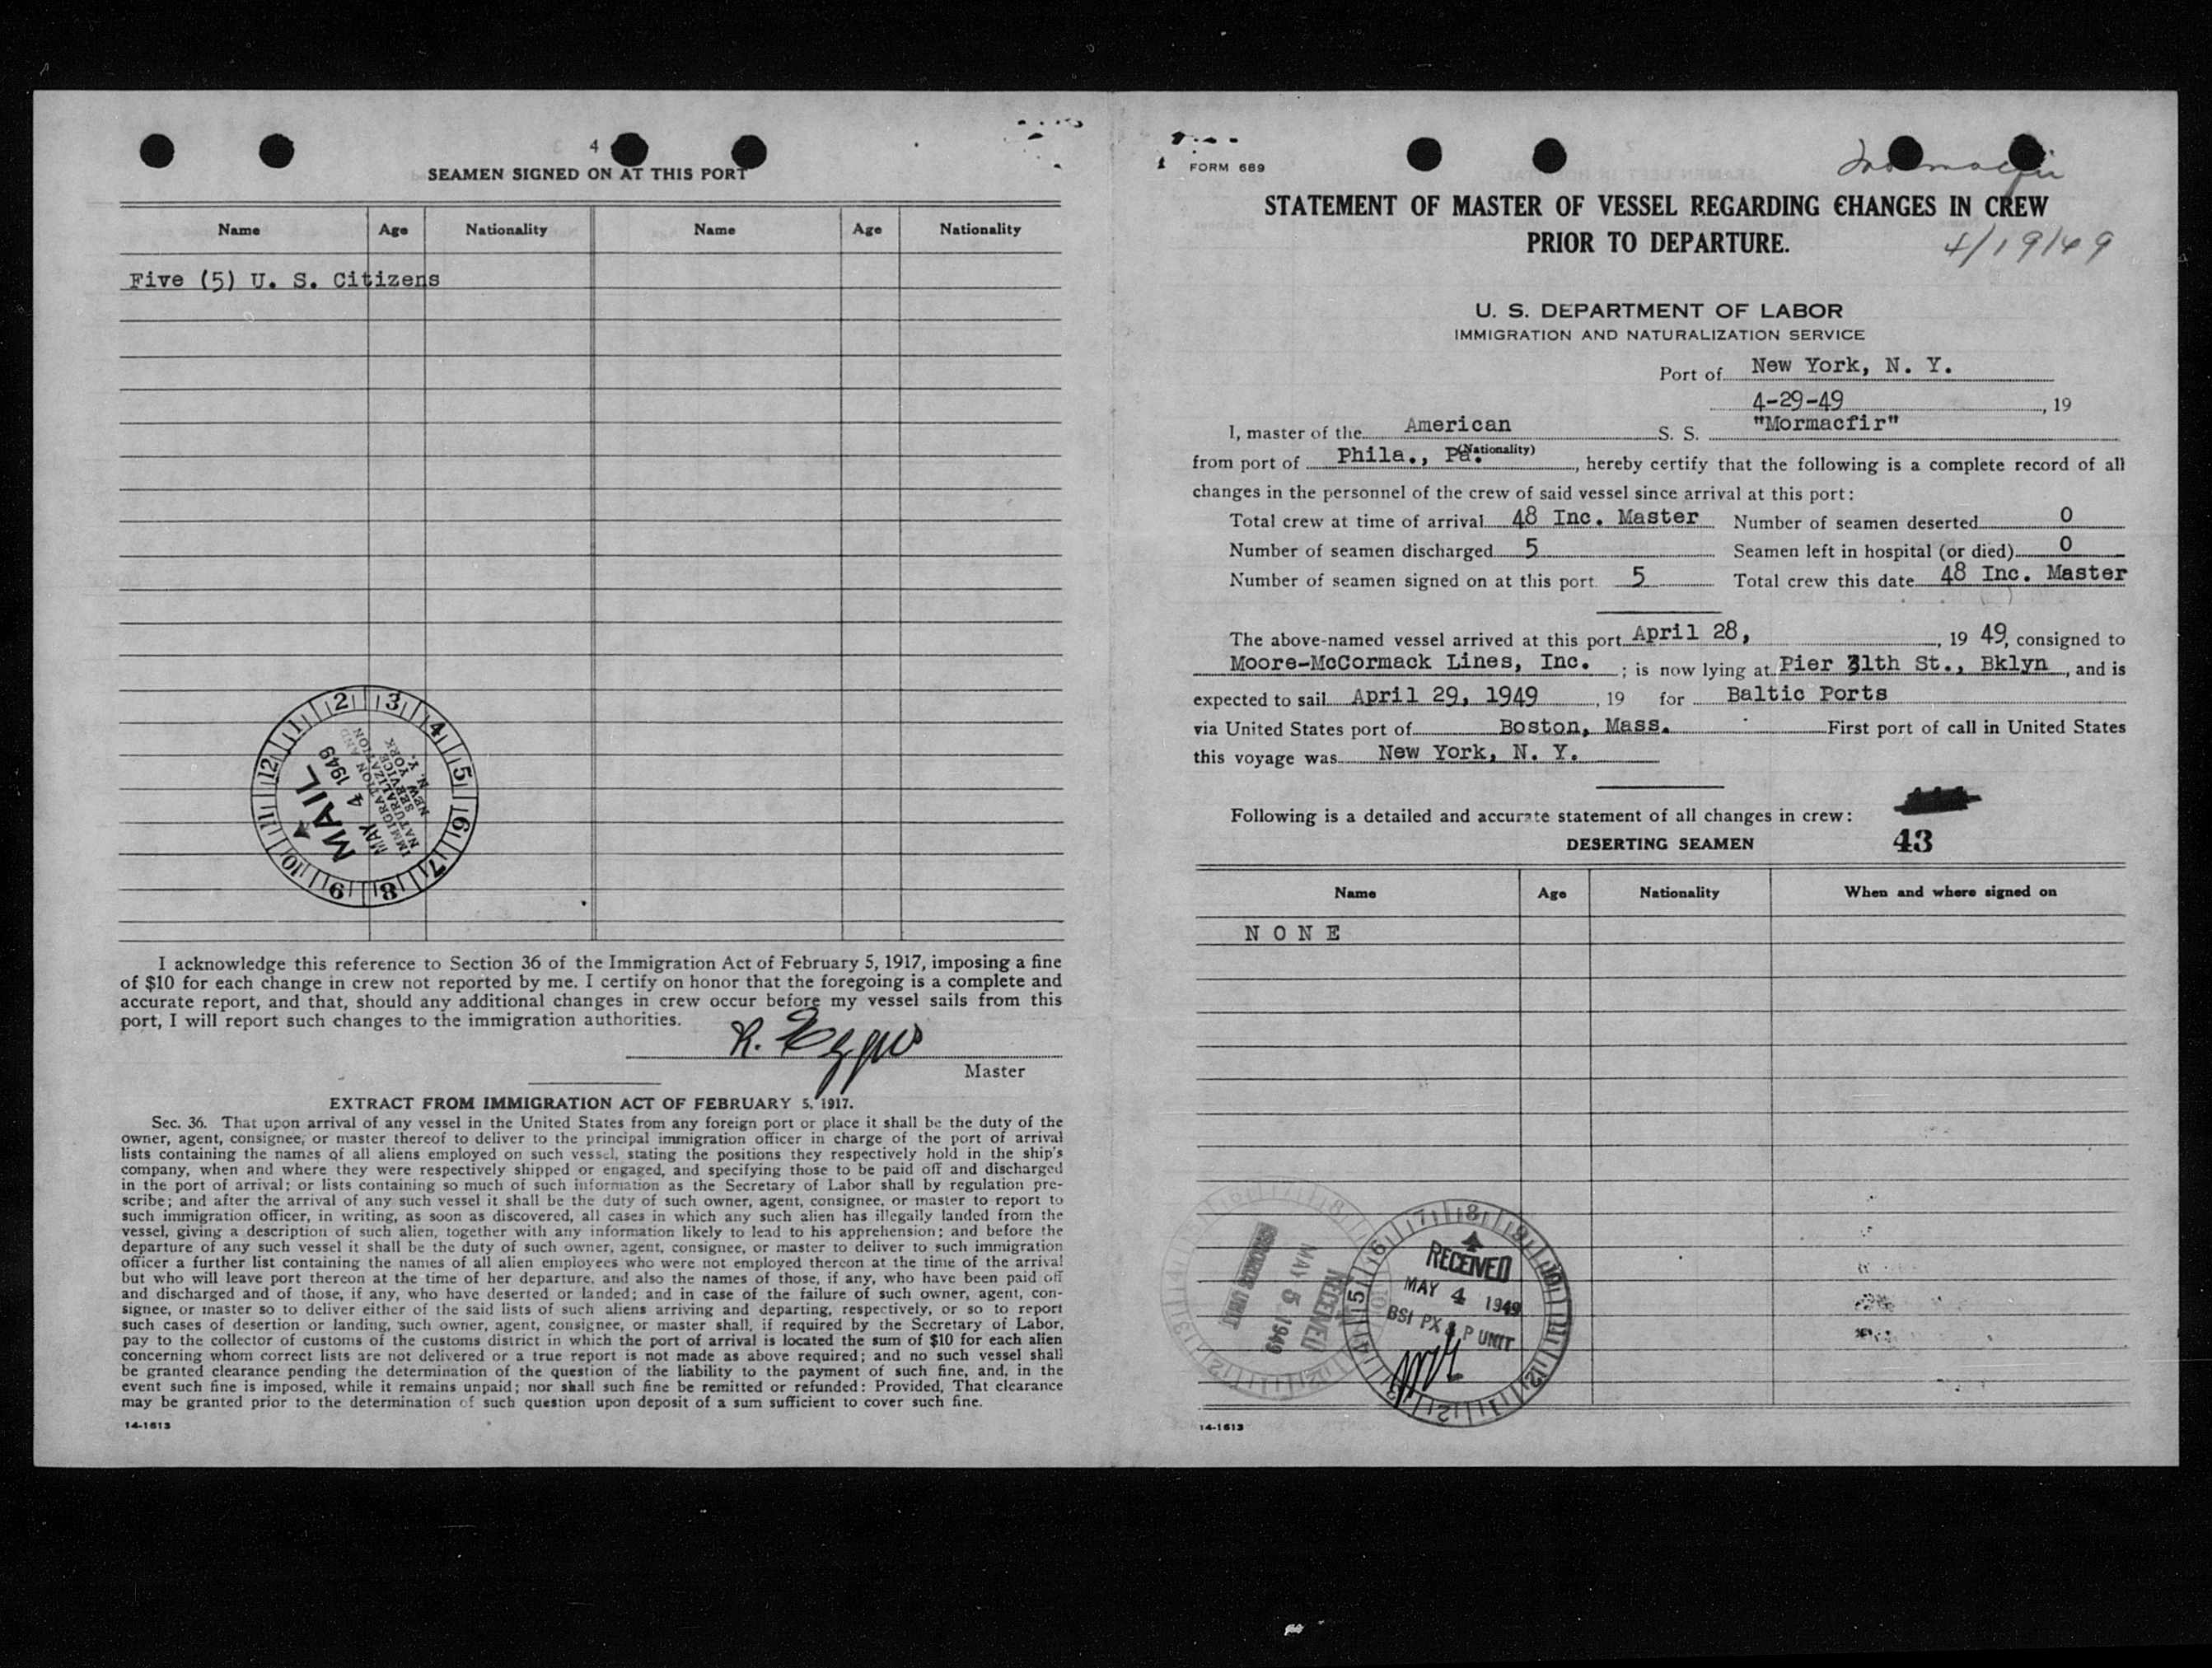 4
SEAMEN SIGNED ON AT THIS PORT
Name Age Nationality Name Age Nationality
Five (5) U. S. Citizens
MAIL
MAY 4 1949
IMMIGRATION AND
NATURALIZATION
SERVICE
NEW YORK
N. Y.
I acknowledge this reference to Section 36 of the Immigration Act of February 5, 1917, imposing a fine
of $10 for each change in crew not reported by me. I certify on honor that the foregoing is a complete and
accurate report, and that, should any additional changes in crew occur before my vessel sails from this
port, I will report such changes to the immigration authorities.
Master
EXTRACT FROM IMMIGRATION ACT OF FEBRUARY 5, 1917.
Sec. 36. That upon arrival of any vessel in the United States from any foreign port or place it shall be the duty of the
owner, agent, consignee, or master thereof to deliver to the principal immigration officer in charge of the port of arrival
lists containing the names of all aliens employed on such vessel, stating the positions they respectively hold in the ship's
company, when and where they were respectively shipped or engaged, and specifying those to be paid off and discharged
in the port of arrival; or lists containing so much of such information as the Secretary of Labor shall by regulation pre-
scribe; and after the arrival of any such vessel it shall be the duty of such owner, agent, consignee, or master to report to
such immigration officer, in writing, as soon as discovered, all cases in which any such alien has illegally landed from the
vessel, giving a description of such alien, together with any information likely to lead to his apprehension; and before the
departure of any such vessel it shall be the duty of such owner, agent, consignee, or master to deliver to such immigration
officer a further list containing the names of all alien employees who were not employed thereon at the time of the arrival
but who will leave port thereon at the time of her departure, and also the names of those, if any, who have been paid off
and discharged and of those, if any, who have deserted or landed; and in case of the failure of such owner, agent, con-
signee, or master so to deliver either of the said lists of such aliens arriving and departing, respectively, or so to report
such cases of desertion or landing, such owner, agent, consignee, or master shall, if required by the Secretary of Labor,
pay to the collector of customs of the customs district in which the port of arrival is located the sum of $10 for each alien
concerning whom correct lists are not delivered or a true report is not made as above required; and no such vessel shall
be granted clearance pending the determination of the question of the liability to the payment of such fine, and, in the
event such fine is imposed, while it remains unpaid; nor shall such fine be remitted or refunded: Provided, That clearance
may be granted prior to the determination of such question upon deposit of a sum sufficient to cover such fine.
14-1613
FORM 689
Mormacfir
STATEMENT OF MASTER OF VESSEL REGARDING CHANGES IN CREW
PRIOR TO DEPARTURE.
4/19/49
U. S. DEPARTMENT OF LABOR
IMMIGRATION AND NATURALIZATION SERVICE
Port of New York, N. Y.
4-29-49, 19
I, master of the American S. S. "Mormacfir"
(Nationality)
from port of Phila., Pa., hereby certify that the following is a complete record of all
changes in the personnel of the crew of said vessel since arrival at this port:
Total crew at time of arrival 48 Inc. Master Number of seamen deserted 0
Number of seamen discharged 5 Seamen left in hospital (or died) 0
Number of seamen signed on at this port 5 Total crew this date 48 Inc. Master
The above-named vessel arrived at this port April 28, , 19 49, consigned to
Moore-McCormack Lines, Inc. ; is now lying at Pier 31th St., Bklyn, and is
expected to sail April 29, 1949, 19 for Baltic Ports
via United States port of Boston, Mass. First port of call in United States
this voyage was New York, N. Y.
Following is a detailed and accurate statement of all changes in crew:
DESERTING SEAMEN 43
Name Age Nationality When and where signed on
N O N E
RECEIVED
MAY 5 1949
RECEIVED
MAY 4 1949
BSI PX & P UNIT
14-1613